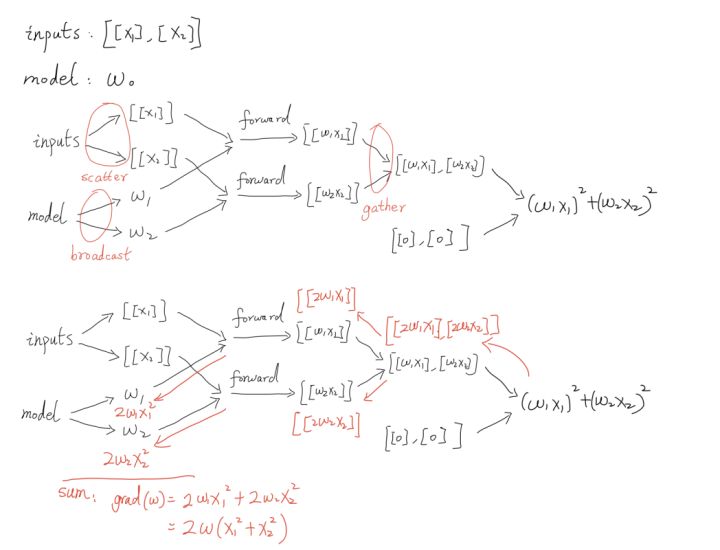 inputs : [[x₁], [x₂]]
model : ω₀
inputs
[[x₁]]
[[x₂]]
scatter
model
ω₁
ω₂
broadcast
forward
[[ω₁x₁]]
forward
[[ω₂x₂]]
gather
[[ω₁x₁], [ω₂x₂]]
[[0], [0]]
(ω₁x₁)² + (ω₂x₂)²
inputs
[[x₁]]
[[x₂]]
model
ω₁
2ω₁x₁²
ω₂
2ω₂x₂²
forward
[[2ω₁x₁]]
[[ω₁x₁]]
forward
[[ω₂x₂]]
[[2ω₂x₂]]
[[2ω₁x₁], [2ω₂x₂]]
[[ω₁x₁], [ω₂x₂]]
[[0], [0]]
(ω₁x₁)² + (ω₂x₂)²
sum: grad(ω) = 2ω₁x₁² + 2ω₂x₂²
= 2ω(x₁² + x₂²)